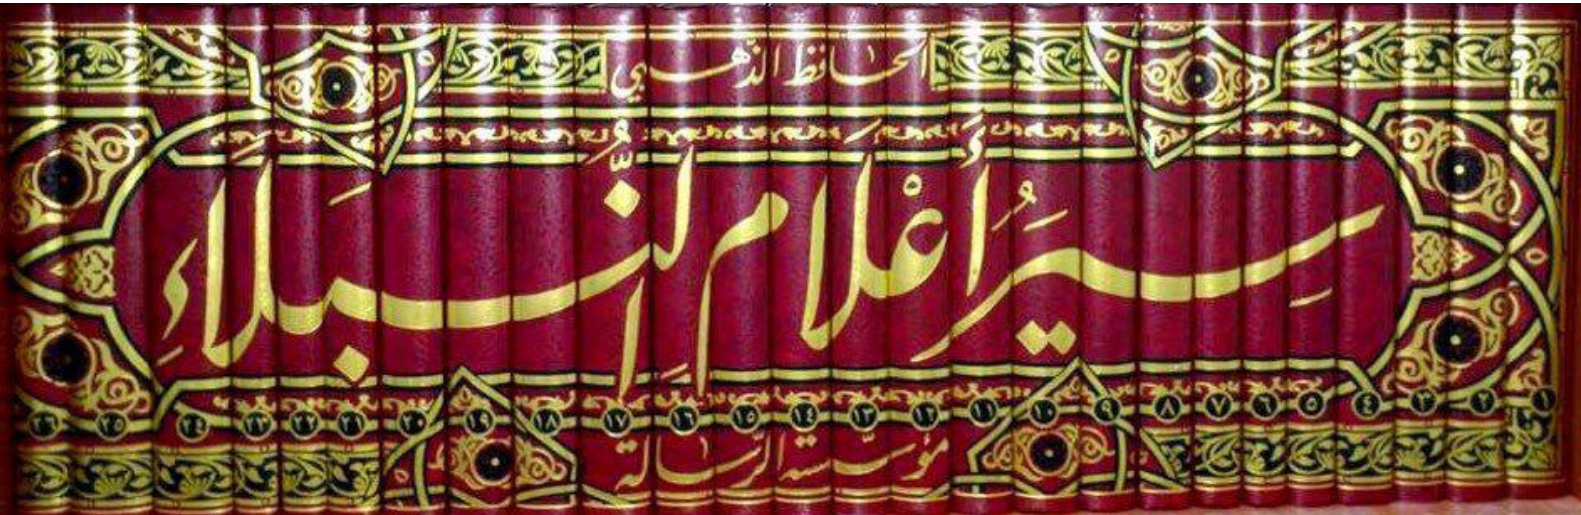 الحافظ الذهبي
سِيَرُ أَعْلَامِ النُّبَلَاءِ
١ ٢ ٣ ٤ ٥ ٦ ٧ ٨ ٩ ١٠ ١١ ١٢ ١٣ ١٤ ١٥ ١٦ ١٧ ١٨ ١٩ ٢٠ ٢١ ٢٢ ٢٣ ٢٤ ٢٥ ٢٦
مؤسسة الرسالة